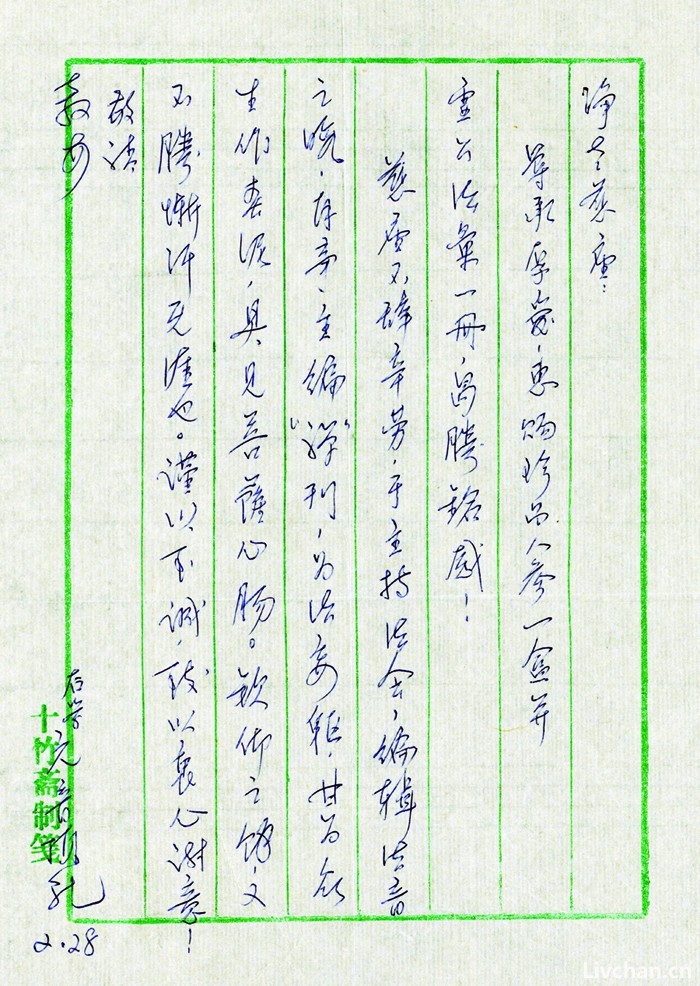 净 慈座：
辱承厚爱，惠赐珍品人参一盒并
虚公法彙一册，曷胜铭感！
慈座不辞辛劳，于主持法会，编辑法音
之 主编“禅刊”，为法忘躯，甘为众
生作春泥，具见菩萨心肠。钦仰之余，又
不胜惭汗无涯也。谨以至诚，致以衷心谢意！
敬请
教安
后学元音顶礼
2.28
十竹斋制笺
Livchan.cn